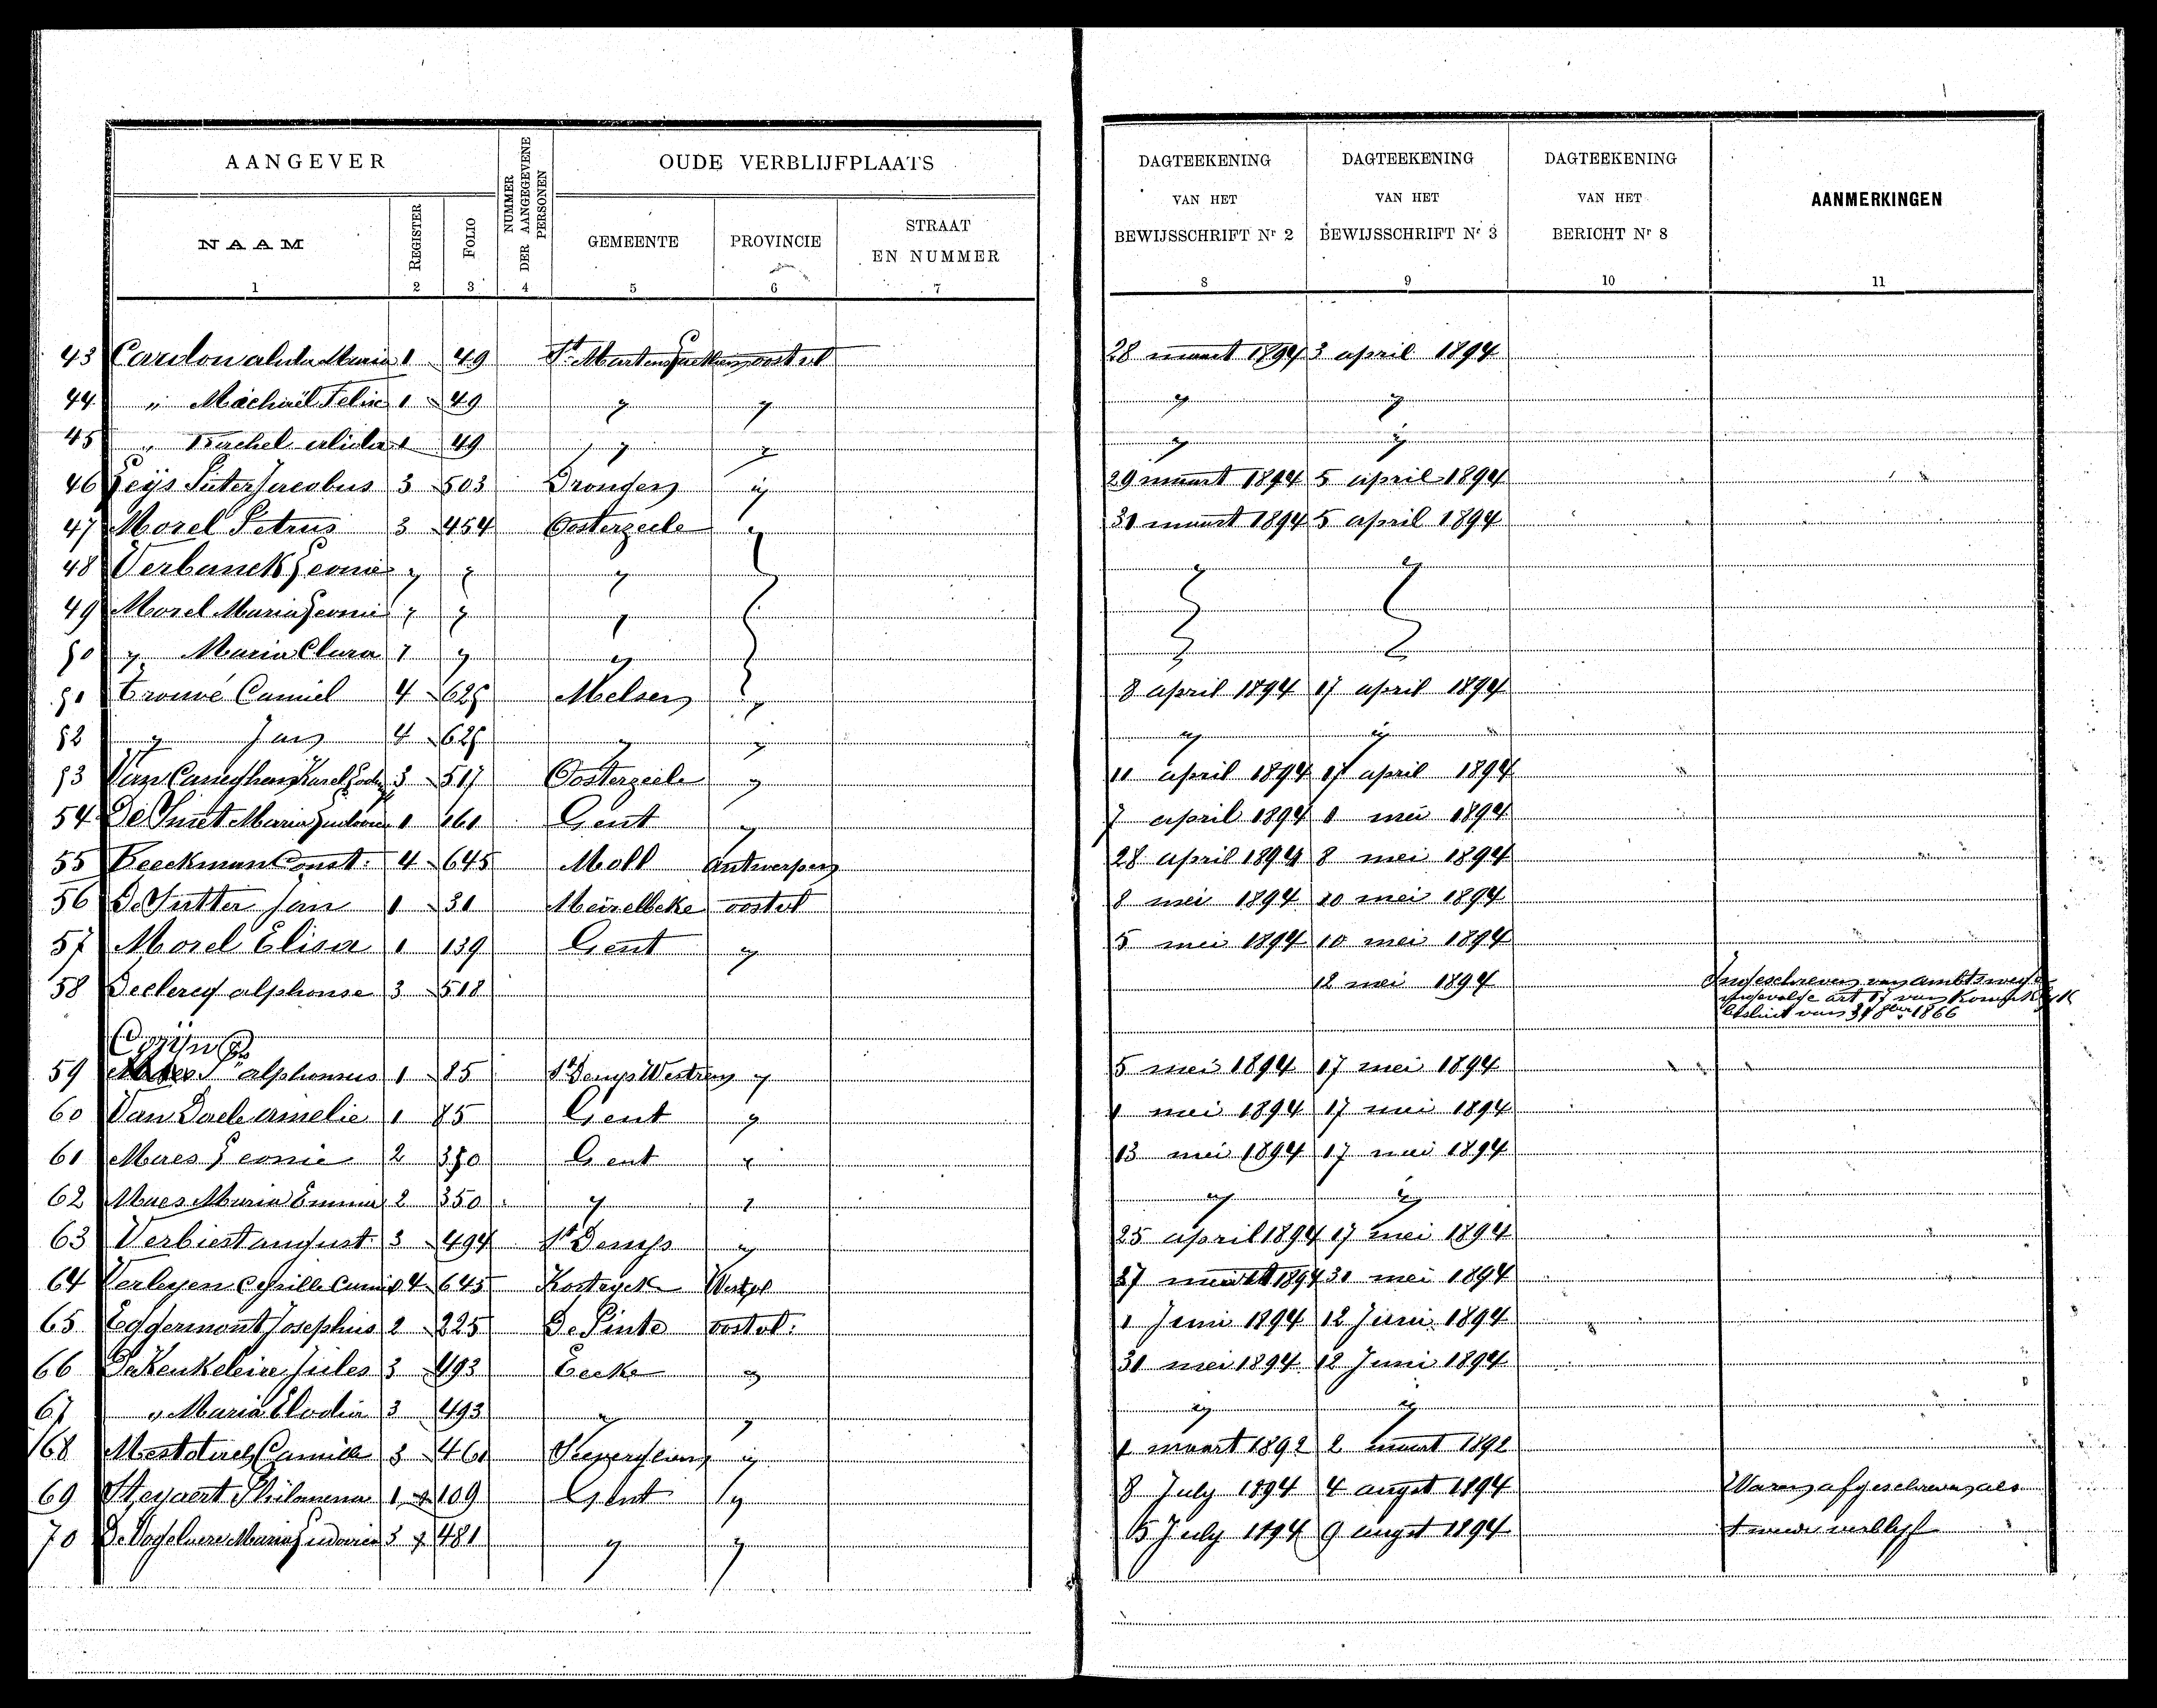 AANGEVER
NUMMER DER AANGEGEVENE PERSONEN
OUDE VERBLIJFPLAATS
DAGTEEKENING VAN HET BEWIJSSCHRIFT Nr 2
DAGTEEKENING VAN HET BEWIJSSCHRIFT Nr 3
DAGTEEKENING VAN HET BERICHT Nr 8
AANMERKINGEN
NAAM REGISTER FOLIO GEMEENTE PROVINCIE STRAAT EN NUMMER
1 2 3 4 5 6 7 8 9 10 11
43 Cardon alida Maria 1 49 St Martens oostvl 28 maart 1894 3 april 1894
44 " Machiël Felix 1 49 " " " "
45 " Rachel alida 1 49 " " " "
46 Leys Pieter Jacobus 3 503 Drongen " 29 maart 1894 5 april 1894
47 Morel Petrus 3 454 Oosterzeele " 31 maart 1894 5 april 1894
48 Verbanck Leonie " " " " "
49 Morel Maria Leonie " " "
50 " Maria Clara " " "
51 Trouvé Camiel 4 625 Melsen " 8 april 1894 17 april 1894
52 " Jan 4 625 " " " "
53 Van Caneghem Karel 3 517 Oosterzeele " 11 april 1894 17 april 1894
54 De Smet Maria Ludovica 1 161 Gent " 7 april 1894 1 mei 1894
55 Beeckman Const: 4 645 Moll Antwerpen 28 april 1894 8 mei 1894
56 De Sutter Jan 1 31 Meirelbeke oostvl 8 mei 1894 10 mei 1894
57 Morel Elisa 1 139 Gent " 5 mei 1894 10 mei 1894
58 Declercq alphonse 3 518 12 mei 1894 Ingeschreven van ambtswege
ingevolge art 17 van Koninklyk
besluit van 31 8ber 1866
59 alphonsus 1 85 St Denys Westrem " 5 mei 1894 17 mei 1894
60 Van Daele amelie 1 85 Gent " 1 mei 1894 17 mei 1894
61 Maes Leonie 2 350 Gent " 13 mei 1894 17 mei 1894
62 Maes Maria Emma 2 350 " " " "
63 Verbiest august 3 494 St Denys " 25 april 1894 17 mei 1894
64 Verleyen Cyrille Camiel 4 645 Kortryck Westvl 27 maart 1894 31 mei 1894
65 Eggermont Josephus 2 225 De Pinte oostvl: 1 Juni 1894 12 Juni 1894
66 De Keukeleire Jules 3 493 Eecke " 31 mei 1894 12 Juni 1894
67 " Maria Elodia 3 493 " " " "
68 Mestdach Camille 3 461 " 1 maart 1892 2 maart 1892
69 Steyaert Philomena 1 109 Gent " 8 July 1894 4 augst 1894 Waren afgeschreven als
70 De Vogelaere Maria Ludovica 3 481 " " 15 July 1894 9 augst 1894